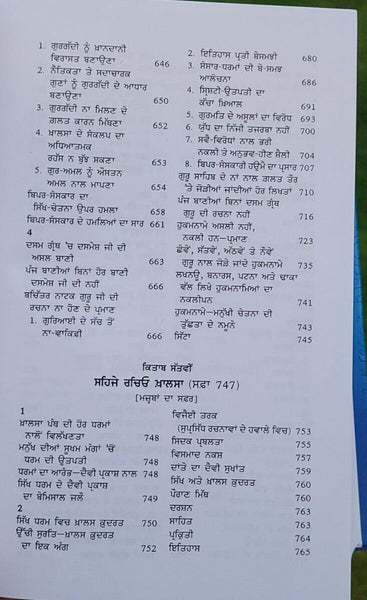 1. ਗੁਰਗੱਦੀ ਨੂੰ ਖ਼ਾਨਦਾਨੀ
ਵਿਰਾਸਤ ਬਣਾਉਣਾ 646
2. ਨੈਤਿਕਤਾ ਤੇ ਸਦਾਚਾਰਕ
ਗੁਣਾਂ ਨੂੰ ਗੁਰਗੱਦੀ ਦੇ ਆਧਾਰ
ਬਣਾਉਣਾ 650
3. ਗੁਰਗੱਦੀ ਨਾ ਮਿਲਣ ਦੇ
ਗ਼ਲਤ ਕਾਰਨ ਮਿੱਥਣਾ 652
4. ਖ਼ਾਲਸਾ ਦੇ ਸੰਕਲਪ ਦਾ
ਅਧਿਆਤਮਕ
ਰਹੱਸ ਨ ਬੁੱਝ ਸਕਣਾ 653
5. ਗੁਰ-ਅਮਲ ਨੂੰ ਔਸਤਨ
ਅਮਲ ਨਾਲ ਮਾਪਣਾ 654
ਬਿਪਰ-ਸੰਸਕਾਰ ਦਾ
ਸਿੱਖ-ਚੇਤਨਾ ਉਪਰ ਹਮਲਾ 658
ਬਿਪਰ-ਸੰਸਕਾਰ ਦੇ ਹਮਲਿਆਂ ਦਾ ਸਾਰ 661
4
ਦਸਮ ਗ੍ਰੰਥ 'ਚ ਦਸਮੇਸ਼ ਜੀ ਦੀ
ਅਸਲ ਬਾਣੀ 663
ਪੰਜ ਬਾਣੀਆਂ ਬਿਨਾਂ ਹੋਰ ਬਾਣੀ
ਦਸਮੇਸ਼ ਜੀ ਦੀ ਨਹੀਂ 663
ਬਚਿੱਤਰ ਨਾਟਕ ਗੁਰੂ ਜੀ ਦੀ
ਰਚਨਾ ਨਾ ਹੋਣ ਦੇ ਪ੍ਰਮਾਣ 666
1. ਗੁਰਿਆਈ ਦੇ ਸੱਚ ਤੋਂ
ਨਾ-ਵਾਕਿਫੀ 666
2. ਇਤਿਹਾਸ ਪ੍ਰਤੀ ਬੇਸਮਝੀ 680
3. ਸੰਸਾਰ-ਧਰਮਾਂ ਦੀ ਬੇ-ਸਮਝ
ਆਲੋਚਨਾ 686
4. ਸ੍ਰਿਸ਼ਟੀ-ਉਤਪਤੀ ਦਾ
ਕੱਚਾ ਖ਼ਿਆਲ 691
5. ਗੁਰਮਤਿ ਦੇ ਅਸੂਲਾਂ ਦਾ ਵਿਰੋਧ 693
6. ਯੁੱਧ ਦਾ ਨਿੱਜੀ ਤਜਰਬਾ ਨਹੀਂ 700
7. ਸਵੈ-ਵਿਰੋਧਾਂ ਨਾਲ ਭਰੀ
ਨਕਲੀ ਤੇ ਅਨੁਭਵ-ਹੀਣ ਸ਼ੈਲੀ 704
8. ਬਿਪਰ-ਸੰਸਕਾਰੀ ਹਉਮੈ ਦਾ ਪ੍ਰਸਾਰ 707
ਗੁਰੂ ਸਾਹਿਬ ਦੇ ਨਾਂ ਨਾਲ ਗ਼ਲਤ ਤੌਰ
'ਤੇ ਜੋੜੀਆਂ ਜਾਂਦੀਆਂ ਹੋਰ ਲਿਖਤਾਂ 710
ਪੰਜ ਬਾਣੀਆਂ ਬਿਨਾਂ ਦਸਮ ਗ੍ਰੰਥ
ਗੁਰੂ ਦੀ ਰਚਨਾ ਨਹੀਂ 716
ਹੁਕਮਨਾਮੇ ਅਸਲੀ ਨਹੀਂ,
ਨਕਲੀ ਹਨ-ਪ੍ਰਮਾਣ 723
ਛੇਵੇਂ, ਸੱਤਵੇਂ, ਅੱਠਵੇਂ ਤੇ ਨੌਵੇਂ
ਗੁਰੂ ਨਾਲ ਜੋੜੇ ਜਾਂਦੇ ਹੁਕਮਨਾਮੇ 735
ਲਖਨਊ, ਬਨਾਰਸ, ਪਟਨਾ ਅਤੇ ਢਾਕਾ
ਵੱਲ ਲਿਖੇ ਹੁਕਮਨਾਮਿਆਂ ਦਾ
ਨਕਲੀਪਨ 741
ਹੁਕਮਨਾਮੇ-ਮਨੁੱਖੀ ਚੇਤਨਾ ਦੀ
ਤੁੱਛਤਾ ਦੇ ਨਮੂਨੇ 743
ਸਿੱਟਾ 745
ਕਿਤਾਬ ਸੱਤਵੀਂ
ਸਹਿਜੇ ਰਚਿਓ ਖ਼ਾਲਸਾ (ਸਫ਼ਾ 747)
[ਮਜ਼੍ਹਬਾਂ ਦਾ ਸਫ਼ਰ]
1
ਖ਼ਾਲਸਾ ਪੰਥ ਦੀ ਹੋਰ ਧਰਮਾਂ
ਨਾਲੋਂ ਵਿਲੱਖਣਤਾ 748
ਮਨੁੱਖ ਦੀਆਂ ਸੂਖਮ ਮੰਗਾਂ 'ਚੋਂ
ਧਰਮ ਦੀ ਉਤਪਤੀ 748
ਧਰਮਾਂ ਦਾ ਆਰੰਭ-ਦੈਵੀ ਪ੍ਰਕਾਸ਼ ਨਾਲ 748
ਸਿੱਖ ਧਰਮ ਦੇ ਦੈਵੀ ਪ੍ਰਕਾਸ਼
ਦਾ ਬੇਮਿਸਾਲ ਜਲੌ 749
2
ਸਿੱਖ ਧਰਮ ਵਿਚ ਖ਼ਾਲਸ ਕੁਦਰਤ 750
ਉੱਚੀ ਸੁਰਤਿ-ਖ਼ਾਲਸ ਕੁਦਰਤ
ਦਾ ਇਕ ਅੰਗ 752
ਵਿਜੈਈ ਤਰਕ
(ਸੁਪ੍ਰਸਿੱਧ ਰਚਨਾਵਾਂ ਦੇ ਹਵਾਲੇ ਵਿਚ) 753
ਸਿਦਕ ਪ੍ਰਬਲਤਾ 755
ਵਿਸਮਾਦ ਨਕਸ਼ 757
ਦਾਂਤੇ ਦਾ ਦੈਵੀ ਸੁਖਾਂਤ 759
ਸਿੱਖ ਅਤੇ ਖ਼ਾਲਸ ਕੁਦਰਤ 760
ਪੌਰਾਣ ਮਿੱਥ 760
ਦਰਸ਼ਨ 763
ਸਾਹਿਤ 763
ਪ੍ਰਕ੍ਰਿਤੀ 764
ਇਤਿਹਾਸ 765